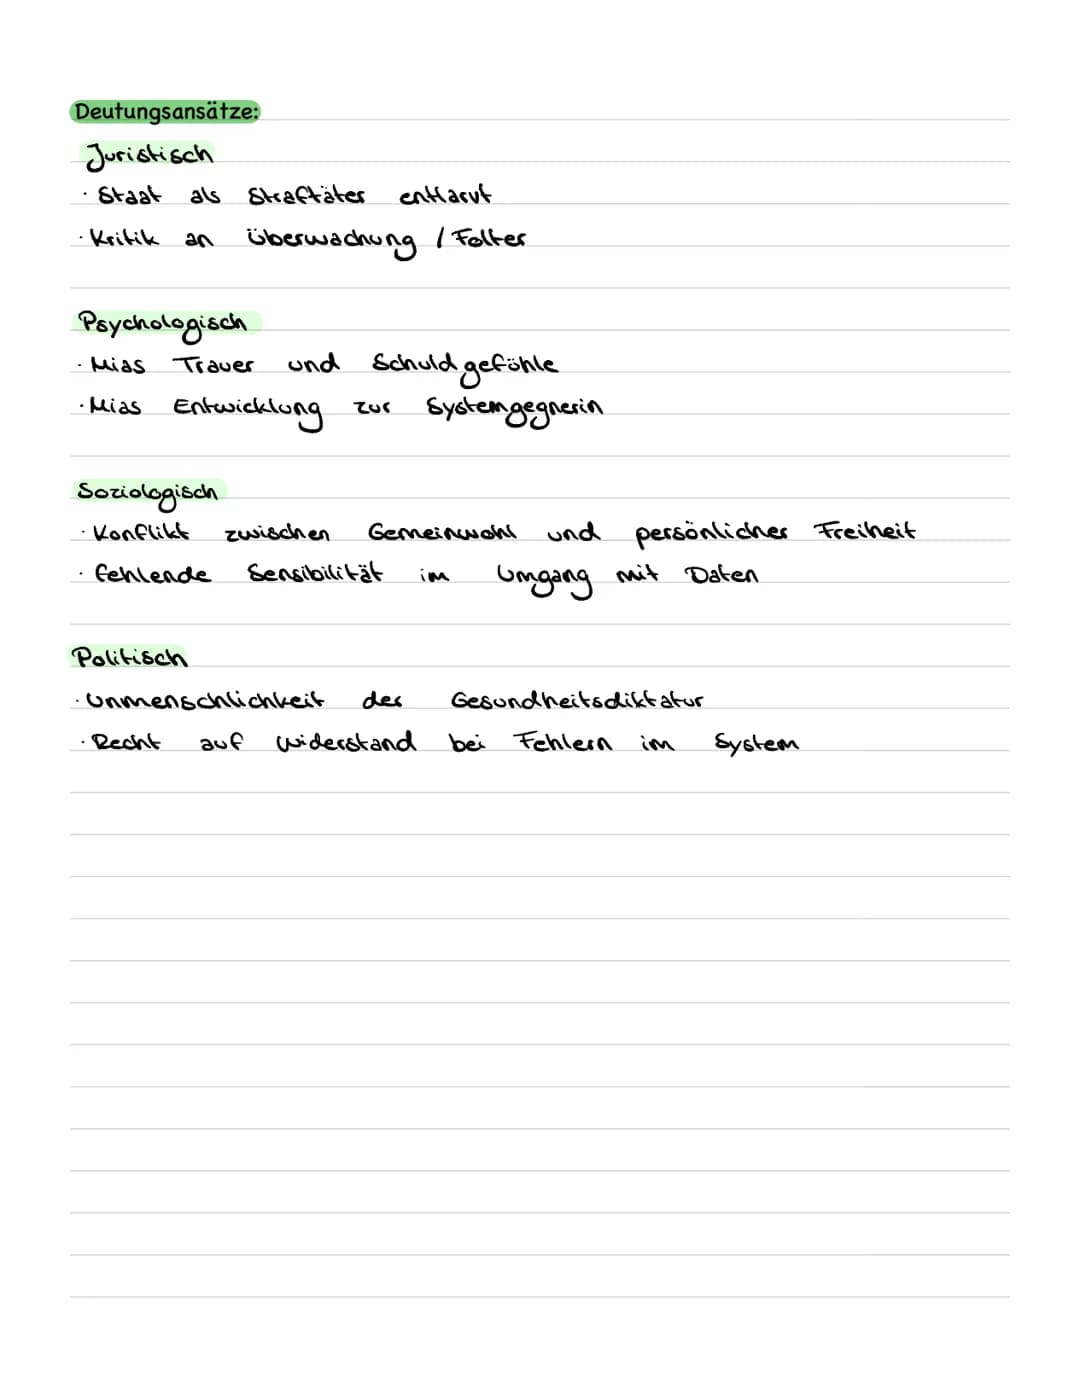 Deutungsansätze:
Juristisch
· Staat als Straftäter entlarvt
· Kritik an Überwachung / Folter
Psychologisch
· Mias Trauer und Schuldgefühle
· Mias Entwicklung zur Systemgegnerin
Soziologisch
· Konflikt zwischen Gemeinwohl und persönlicher Freiheit
· fehlende Sensibilität im Umgang mit Daten
Politisch
· Unmenschlichkeit der Gesundheitsdiktatur
· Recht auf Widerstand bei Fehlern im System